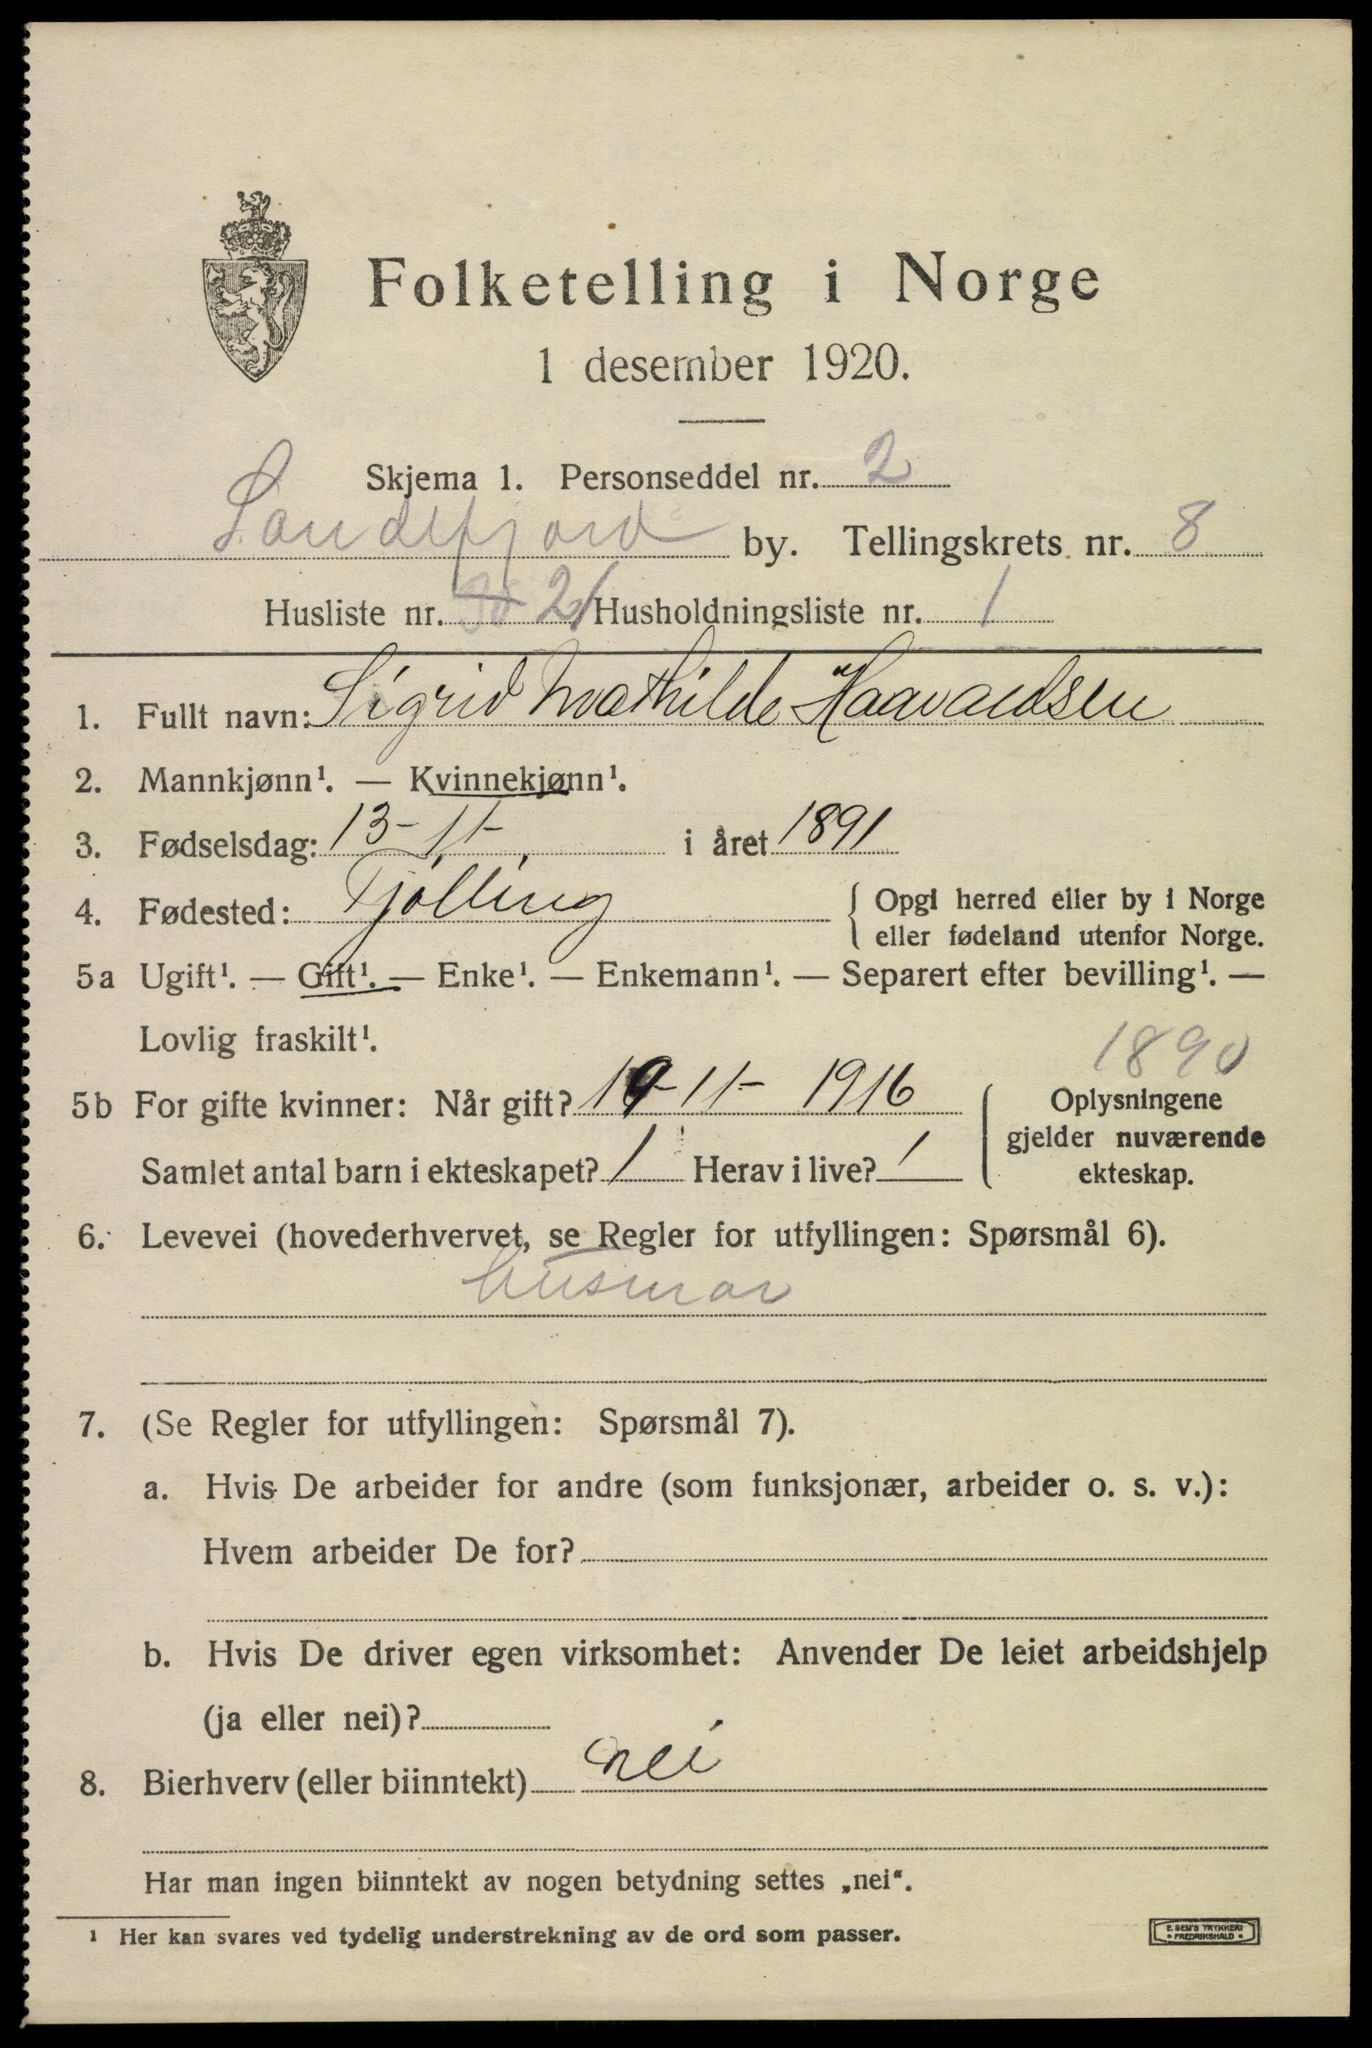 Folketelling i Norge
1 desember 1920.
Skjema 1. Personseddel nr. 2
Sandefjord by. Tellingskrets nr. 8
Husliste nr. 21 Husholdningsliste nr. 1
1. Fullt navn: Sigrid Mathilde Haavaldsen
2. Mannkjønn¹. — Kvinnekjønn¹.
3. Fødselsdag: 13-11- i året 1891
4. Fødested: Tjölling { Opgi herred eller by i Norge
eller fødeland utenfor Norge.
5a Ugift¹. — Gift¹. — Enke¹. — Enkemann¹. — Separert efter bevilling¹. —
Lovlig fraskilt¹.
1890
5b For gifte kvinner: Når gift? 19-11-1916 { Oplysningene
gjelder nuværende
Samlet antal barn i ekteskapet? 1 Herav i live? 1
ekteskap.
6. Levevei (hovederhvervet, se Regler for utfyllingen: Spørsmål 6).
husmor
7. (Se Regler for utfyllingen: Spørsmål 7).
a. Hvis De arbeider for andre (som funksjonær, arbeider o. s. v.):
Hvem arbeider De for?
b. Hvis De driver egen virksomhet: Anvender De leiet arbeidshjelp
(ja eller nei)?
8. Bierhverv (eller biinntekt) nei
Har man ingen biinntekt av nogen betydning settes „nei“.
¹ Her kan svares ved tydelig understrekning av de ord som passer.
E. SEM'S TRYKKERI
• FREDRIKSHALD •